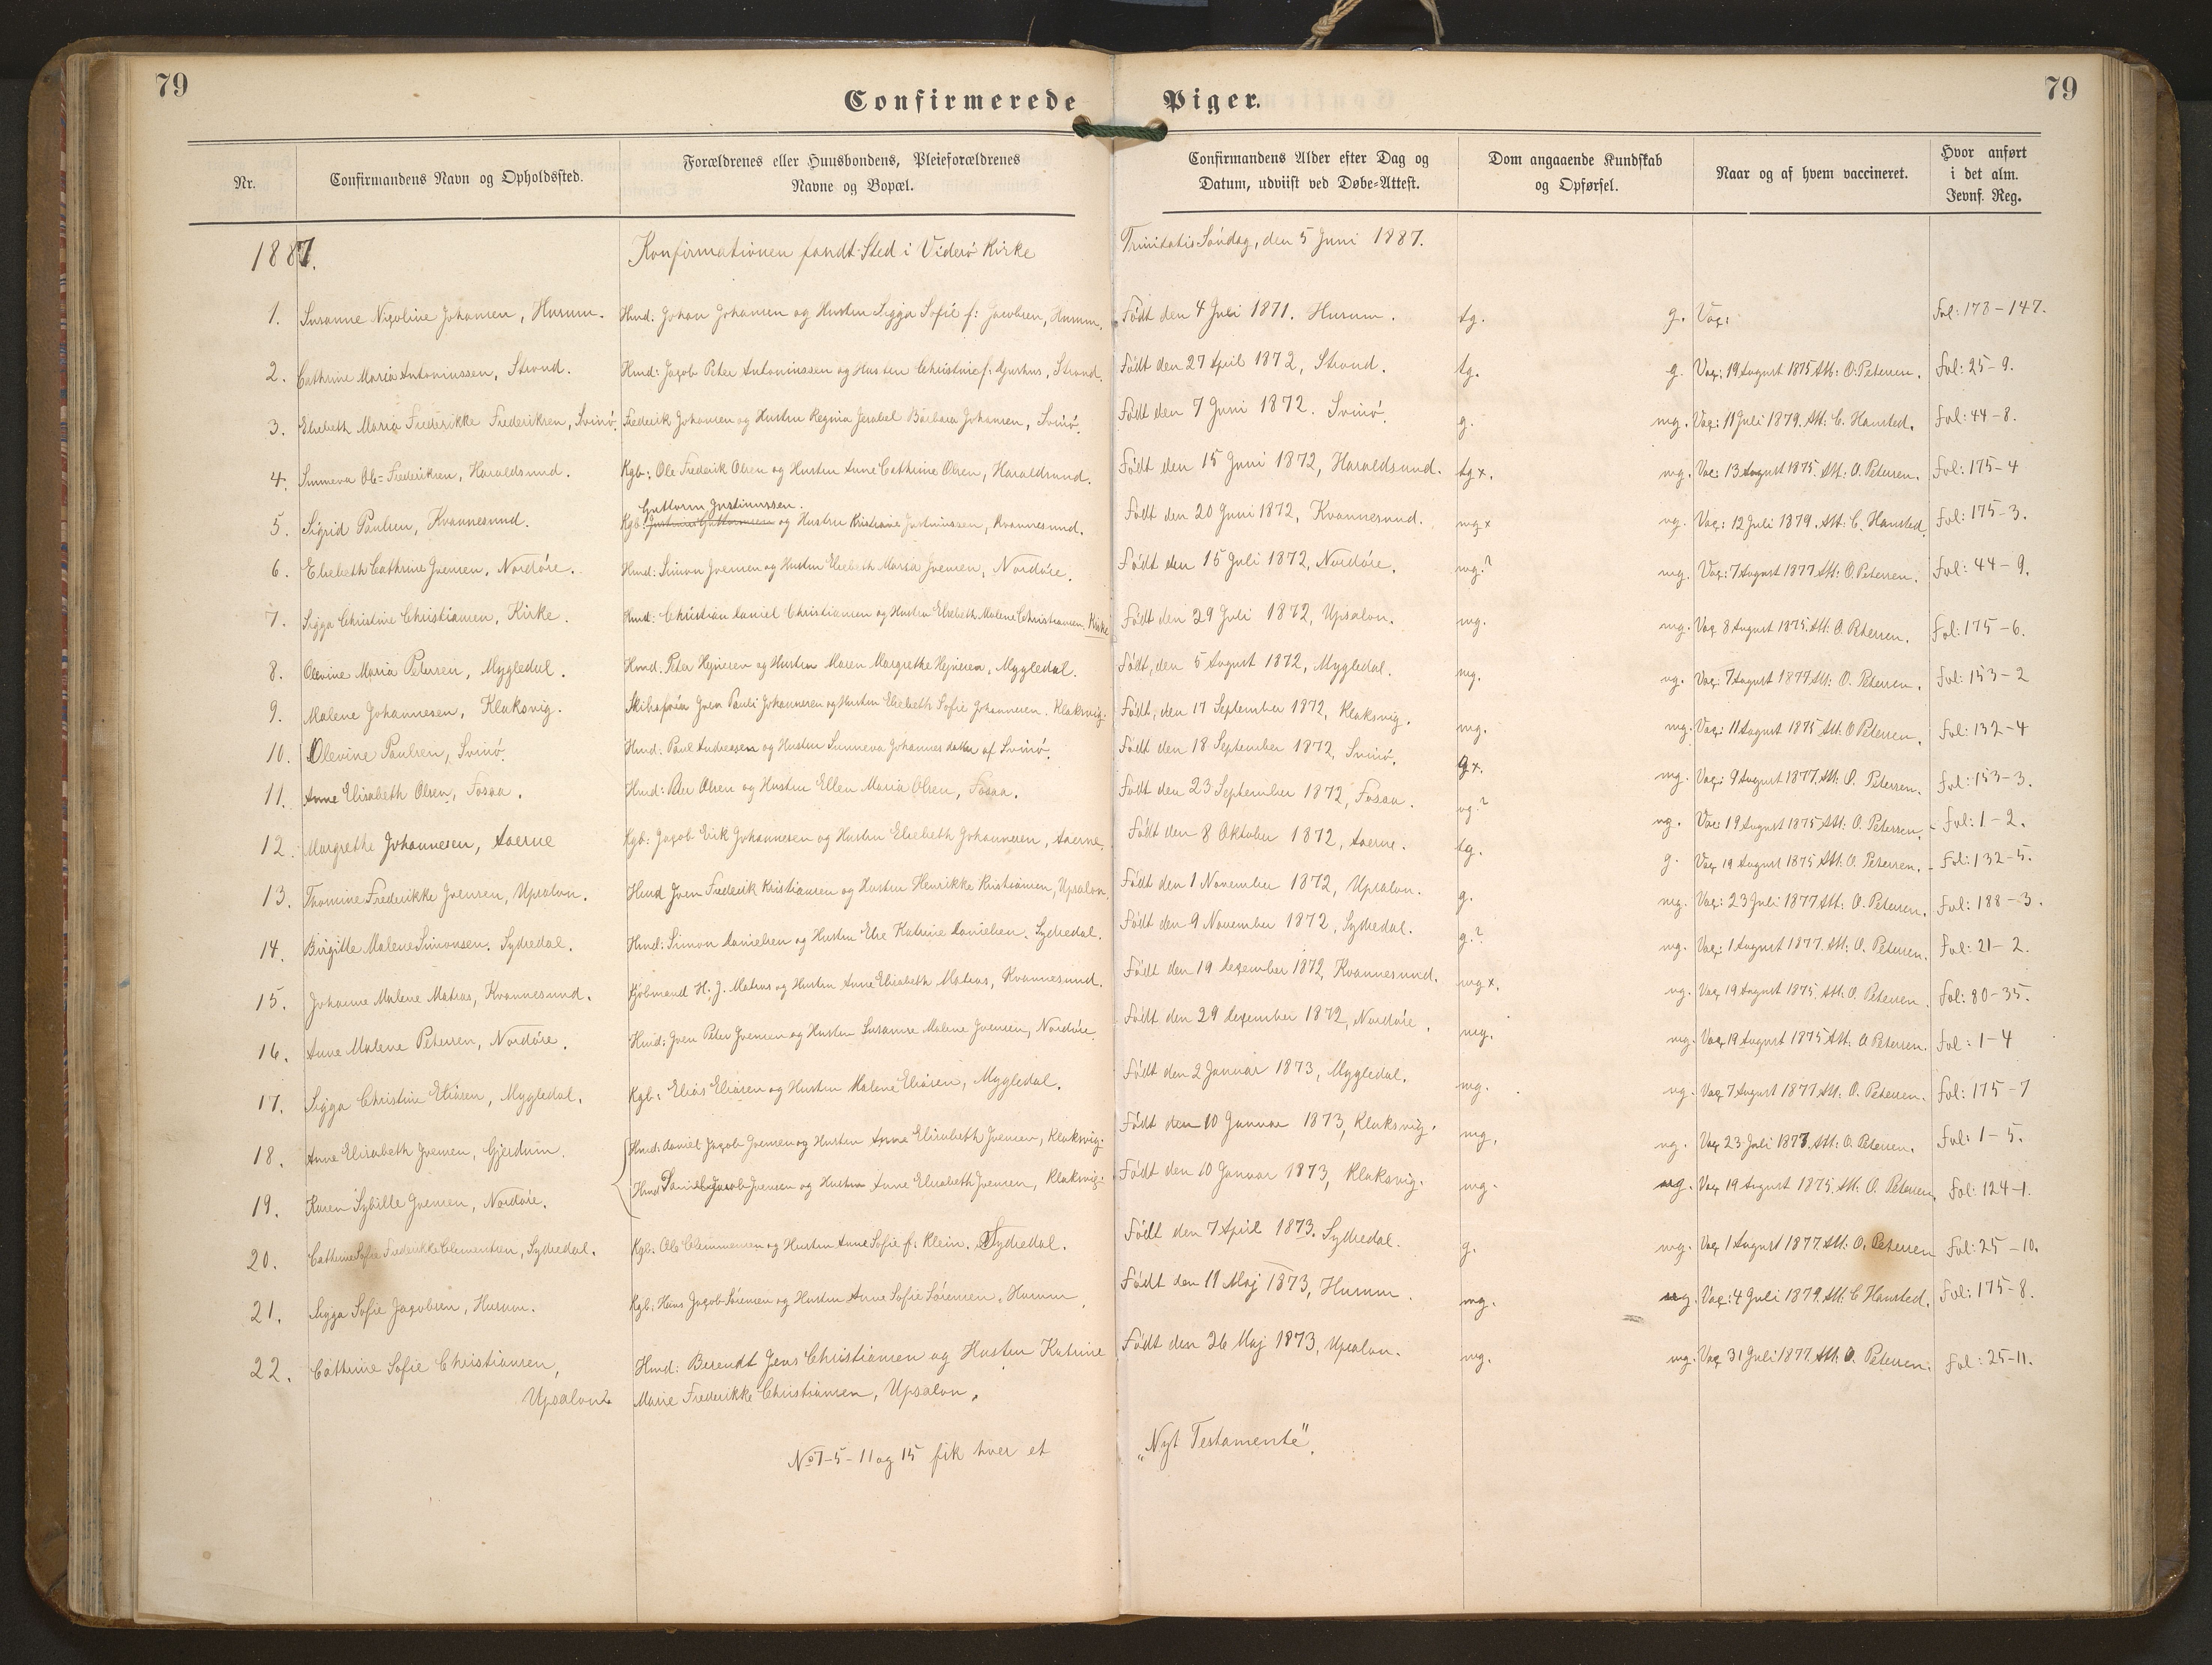 79
79
Confirmerede Piger.
Nr.
Confirmandens Navn og Opholdssted.
Forældrenes eller Huusbondens, Pleieforældrenes
Navne og Bopæl.
Confirmandens Alder efter Dag og
Datum, udviist ved Døbe-Attest.
Dom angaaende Kundskab
og Opførsel.
Naar og af hvem vaccineret.
Hvor anført
i det alm.
Jevnf. Reg.
1887. Konfirmationen fandt Sted i Viderø Kirke Trinitatis Søndag, den 5 Juni 1887.
1. Susanne Nicoline Johansen, Husum. Hmd: Johan Johansen og Hustru Sigga Sofie f: Jacobsen, Husum. Født den 4 Juli 1871. Husum. tg. g. Vac: Fol: 178-147.
2. Cathrine Maria Antoniussen, Strond. Hmd: Jacob Peter Antoniussen og Hustru Christine f: Strond. Født den 27 April 1872, Strond. tg. g. Vac: 19 August 1875 Att: O. Petersen. Fol: 25-9.
3. Elsebeth Maria Frederikke Frederiksen, Svinø. Frederik Johansen og Hustru Regina Jesabel Barbara Johansen, Svinø. Født den 7 Juni 1872. Svinø. g. mg. Vac: 11 Juli 1879. Att: C. Hansted. Fol: 44-8.
4. Sunneva Ole-Frederiksen, Haraldsund. Kgb: Ole Frederik Olsen og Hustru Anne Cathrine Olsen, Haraldsund. Født den 15 Juni 1872, Haraldsund. tg x. mg. Vac: 13 August 1875. Att: O. Petersen. Fol: 175-4
Guttorm Justinussen.
5. Sigrid Poulsen, Kvannesund. Kgb: Justinus Guttormsen og Hustru Kristiane Justinussen, Kvannesund. Født den 20 Juni 1872, Kvannesund. mg x ug. Vac: 12 Juli 1879. Att: C. Hansted. Fol: 175-3.
6. Elsebeth Cathrine Joensen, Nordøre. Hmd: Simon Joensen og Hustru Elsebeth Maria Joensen, Nordøre. Født den 15 Juli 1872, Nordøre. mg.? mg. Vac: 7 August 1877 Att: O. Petersen. Fol: 44-9.
7. Sigga Christine Christiansen, Kirke. Hmd: Christian Daniel Christiansen og Hustru Elsebeth Malene Christiansen. Kirke Født den 29 Juli 1872, Upsalon. mg. mg. Vac 8 August 1875. Att: O. Petersen. Fol: 175-6.
8. Olevine Maria Petersen, Mygledal. Hmd: Peter Hejnesen og Hustru Maren Margrethe Hejnesen, Mygledal. Født, den 5 August 1872, Mygledal. mg. ug. Vac: 7 August 1877 Att: O. Petersen. Fol: 153-2
9. Malene Johannesen, Klaksvig. Joen Pauli Johannesen og Hustru Elsebeth Sofie Johannesen. Klaksvig. Født, den 17 September 1872, Klaksvig. mg. mg. Vac: 11 August 1875 Att: O Petersen. Fol: 132-4
10. Olevine Poulsen, Svinø. Hmd: Poul Andreasen og Hustru Sunneva Johannes datter af Svinø. Født den 18 September 1872, Svinø. g x. mg. Vac: 9 August 1877. Att: O. Petersen. Fol: 153-3.
11. Anne Elisabeth Olsen, Fossa. Hmd: Peer Olsen og Hustru Ellen Maria Olsen, Fossa. Født den 23 September 1872, Fossa. ug.? ug. Vac: 19 August 1875 Att: O. Petersen. Fol: 1-2.
12. Margrethe Johannesen, Aaerne Kgb: Jacob Eiik Johannesen og Hustru Elsebeth Johannesen, Aaerne. Født den 8 Oktober 1872, Aaerne. tg. g. Vac 19 August 1875 Att: O. Petersen. Fol: 132-5.
13. Thomine Frederikke Joensen, Upsalon. Hmd Joen Frederik Kristiansen og Hustru Henrikke Kristiansen, Upsalon. Født den 1 November 1872, Upsalon. g. mg. Vac: 23 Juli 1877 Att: O. Petersen. Fol: 188-3.
14. Birgitte Malene Simonsen. Sydredal. Hmd: Simon Danielsen og Hustru Else Katrine Danielsen. Sydredal. Født den 9 November 1872, Sydredal. g.? mg. Vac: 1 August 1877. Att: O. Petersen. Fol: 21-2.
15. Johanne Malene Matras, Kvannesund. Kjøbmand H. J. Matras og Hustru Anne Elisabeth Matras, Kvannesund. Født den 19 December 1872, Kvannesund. mg x. ug. Vac 19 August 1875. Att: O. Petersen. Fol: 80-35.
16. Anne Malene Petersen, Nordøre. Hmd: Joen Peter Joensen og Hustru Susanne Malene Joensen, Nordøre. Født den 29 December 1872, Nordøre. mg. mg. Vac 19 August 1875 Att: O Petersen. Fol: 1-4
17. Sigga Christine Eliasen, Mygledal. Kgb: Elias Eliasen og Hustru Malene Eliasen, Mygledal. Født den 2 Januar 1873, Mygledal. mg. ug. Vac 7 August 1877 Att: O. Petersen. Fol: 175-7
18. Anne Elisabeth Joensen, Gjerdum. Hmd: Daniel Jacob Joensen og Hustru Anna Elisabeth Joensen, Klaksvig. Født den 10 Januar 1873, Klaksvig. mg. ug. Vac 23 Juli 1877. Att: O. Petersen. Fol: 1-5.
19. Karen Sybille Joensen, Nordøre. Hmd Daniel Jacob Joensen og Hustru Anne Elisabeth Joensen, Klaksvig. Født den 10 Januar 1873, Klaksvig. mg. ug. Vac 19 August 1875. Att: O. Petersen. Fol: 124-1.
20. Cathrine Sofie Frederikke Clementsen, Sydredal. Kgb: Ole Clemmensen og Hustru Anne Sofie f: Klein. Sydredal. Født den 7 April 1873. Sydredal. g. mg. Vac 1 August 1877. Att: O. Petersen Fol: 25-10.
21. Sigga Sofie Jacobsen, Husum. Kgb: Hans Jacob Sørensen og Hustru Anne Sofie Sørensen, Husum. Født den 11 Maj 1873, Husum. mg. ug. Vac: 4 Juli 1879. Att: C Hansted. Fol: 175-8.
22. Cathrine Sofie Christiansen, Hmd: Berendt Jens Christiansen og Hustru Katrine Født den 26 Maj 1873, Upsalon. mg. mg. Vac 31 Juli 1877. Att: O. Petersen. Fol: 25-11.
Upsalon. Marie Frederikke Christiansen, Upsalon.
No 7-5-11 og 15 fik hver et „Nyt Testamente”.